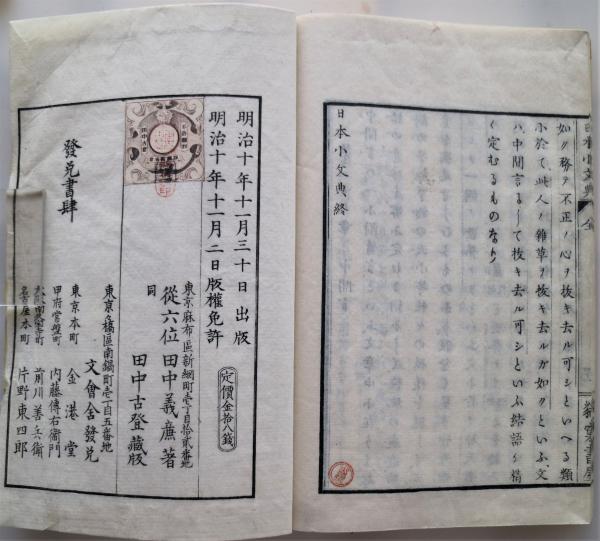 如ク務テ不正ノ心ヲ抜キ去ル可シといへる類
に於て此人ノ雑草ヲ抜キ去ルガ如クといふ文
ハ中間言にして抜キ去ル可シといふ結語の情
く定むるものなり
日本小文典終
明治十年十一月三十日出版
明治十年十一月二日版權免許
定價金拾八錢
東京麻布區新網町壱丁目拾貳番地
從六位田中義廉著
同
田中古登藏版
發兌書肆
東京京橋區南鍋町壱丁目五番地
文會舍發兌
東京本町
金港堂
甲府常盤町
内藤傳右衞門
前川善兵衞
名古屋本町
片野東四郎